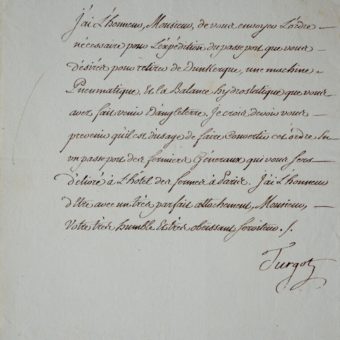 J'ai L'honneur, Monsieur, de vous envoyer L'ordre
nécessaire pour L'expédition du passeport que vous
désirés pour retirer de Dunkerque, une machine
Pneumatique, et la Balance hydrostatique que vous
avez fait venir D'angleterre. Je crois devoir vous
prevenir qu'il est d'usage de faire Convertir cet ordre En
un passeport des fermiers Généraux qui vous sera
délivré à L'hôtel des fermes à Paris. J'ai L'honneur
D'être avec un très parfait attachement, Monsieur,
Votre très humble et très obeissant serviteur ./.
Turgot